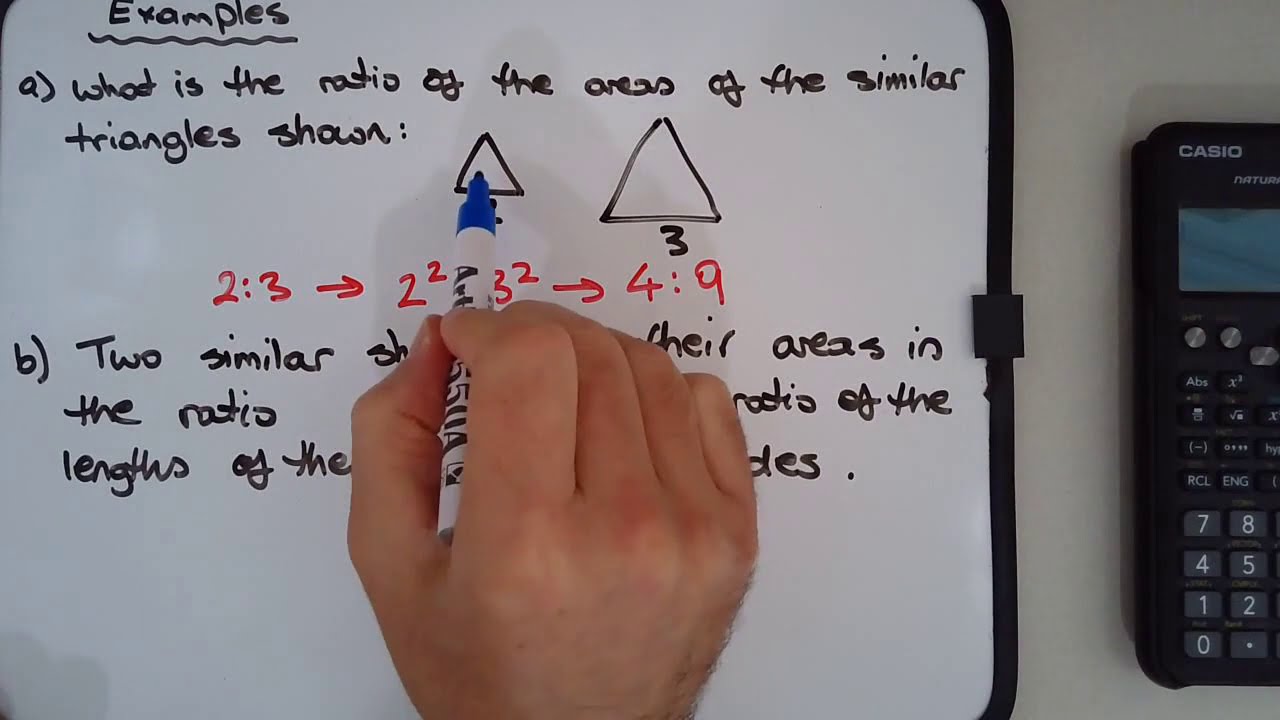 Examples
a) what is the ratio of the areas of the similar
triangles shown:
3
2:3 → 2² 3² → 4:9
b) Two similar their areas in
the ratio ratio of the
lengths of the
CASIO
Abs x³
(-) hyp
RCL ENG (
7 8
4 5
1 2
0 .